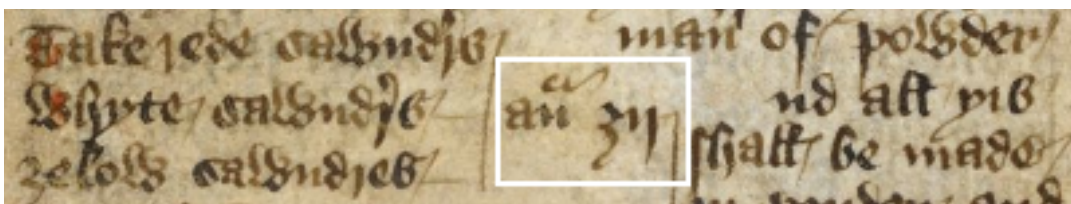 Take rede sawndris
Whyte sawndris
zelow sawndres
anͣ ʒij
man̄ of powder
nd all yis
shall be made